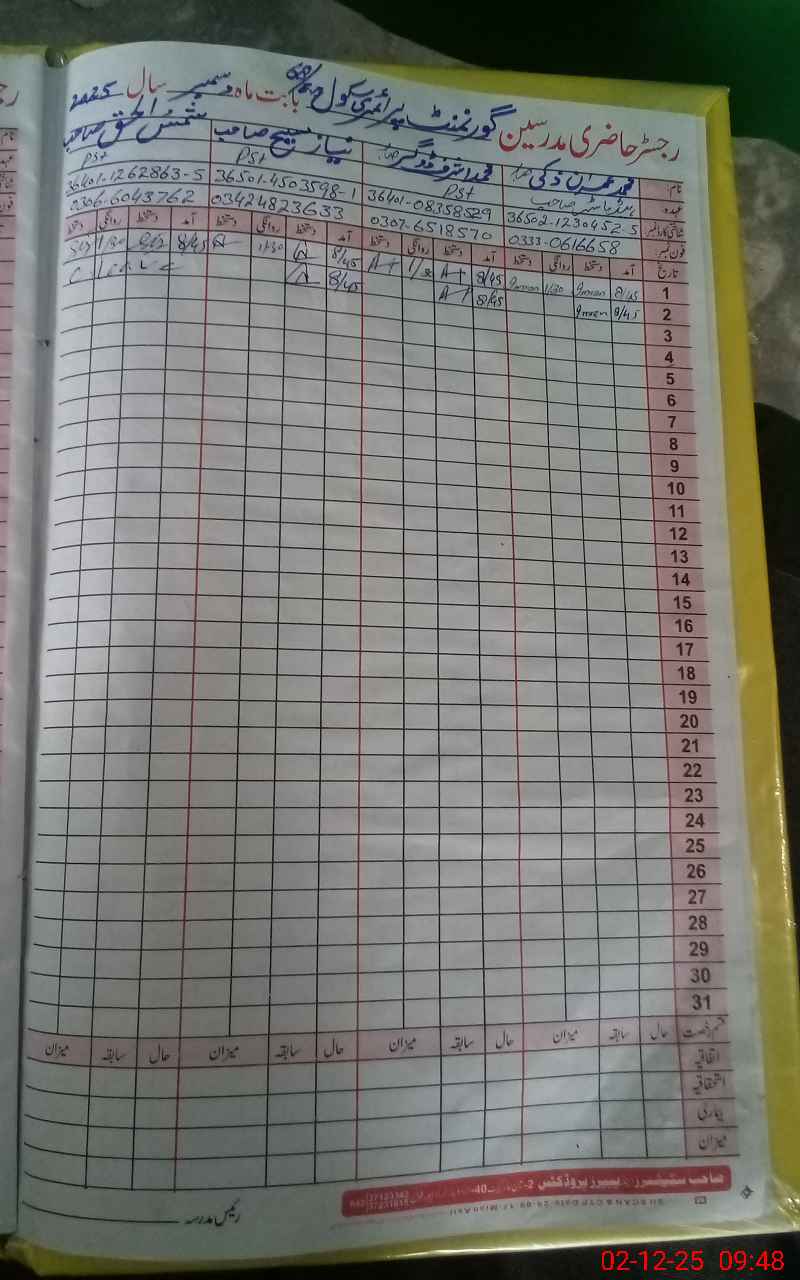 رجسٹر حاضری مدرسین گورنمنٹ پرائمری سکول 68/ بابت ماہ دسمبر سال 2025
نام محمد عمران ذکی صاحب محمد اشرف ڈوگر صاحب نیاز مسیح صاحب شمس الحق صاحب
عہدہ ہیڈ ماسٹر صاحب PSt PSt PSt
شناختی کارڈ نمبر 36502-1230452-5 36401-08358529 36501-4503598-1 36401-1262863-5
فون نمبر 0333-0616658 0307-6518570 03424823633 0306-6043762
تاریخ آمد دستخط روانگی دستخط آمد دستخط روانگی دستخط آمد دستخط روانگی دستخط آمد دستخط روانگی دستخط
1 8/45 Imran 1/30 Imran 8/45 A+ A+ 8/45 1/30 8/45 1/30
2 8/45 Imran 8/45 A+ 8/45 C Leave
3
4
5
6
7
8
9
10
11
12
13
14
15
16
17
18
19
20
21
22
23
24
25
26
27
28
29
30
31
قسم رخصت حال سابقہ میزان حال سابقہ میزان حال سابقہ میزان حال سابقہ میزان
اتفاقیہ
استحقاقیہ
بیماری
میزان
صاحب سٹیشنرز پیپرز پروڈکٹس
رئیس مدرسہ
02-12-25 09:48